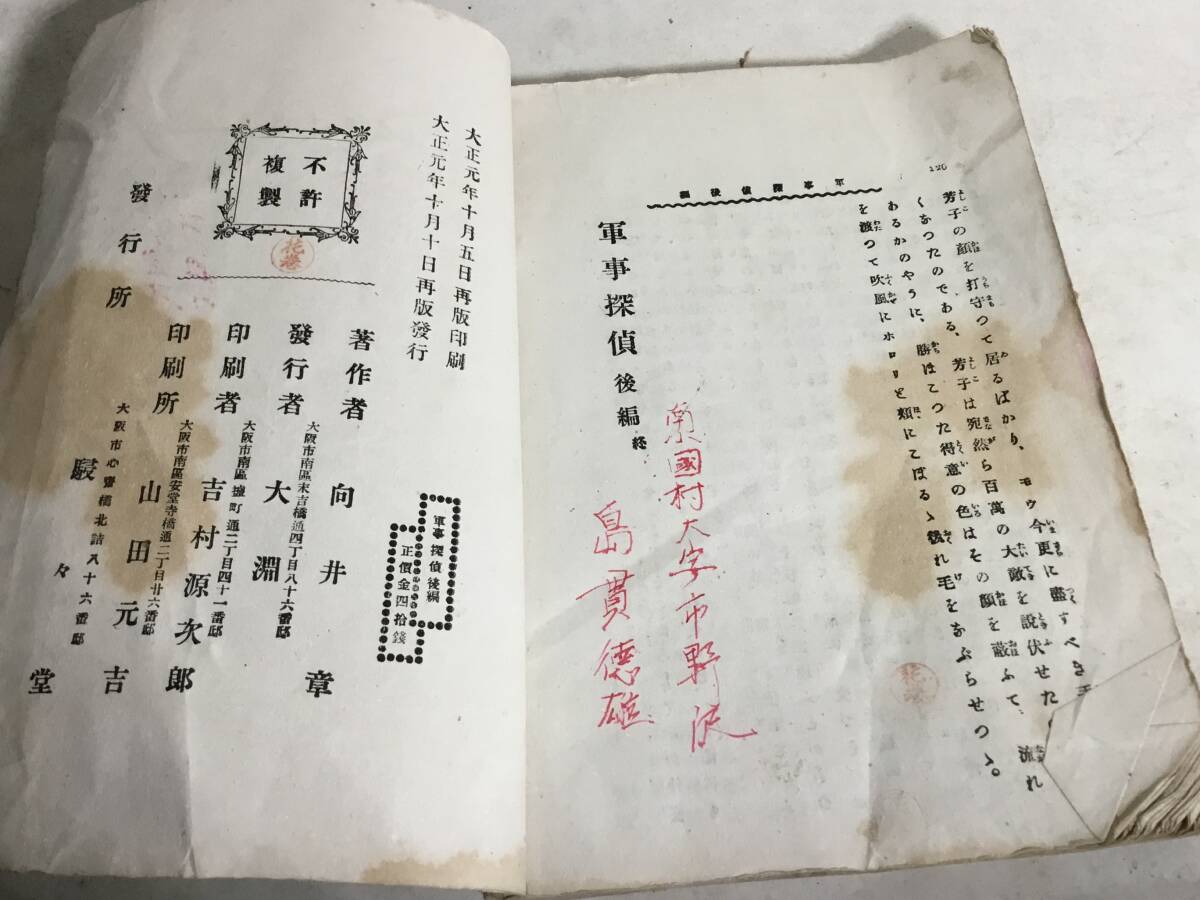 120
軍事探偵後編
芳子の顔を打守つて居るばかり、モウ今更に盡すべき
くなつたのである、芳子は宛然ら百萬の大敵を説伏せた
あるかのやうに、勝ほこつた得意の色はその顔を蔽ふて、流れ
を渡つて吹風にホロリと頬にこぼるゝ後れ毛をなぶらせつゝ。
軍事探偵後編終
國村大字市野沢
島貫德雄
大正元年十月五日再版印刷
大正元年十月十日再版發行
不許複製
花巻
軍事探偵後編
正價金四拾錢
著作者 向井章
大阪市南區末吉橋通四丁目八十六番邸
發行者 大淵
大阪市南區 町通二丁目四十一番邸
印刷者 吉村源次郎
大阪市南區安堂寺橋通二丁目廿六番邸
印刷所 山田元吉
大阪市心齋橋北詰八十六番邸
發行所 駸々堂